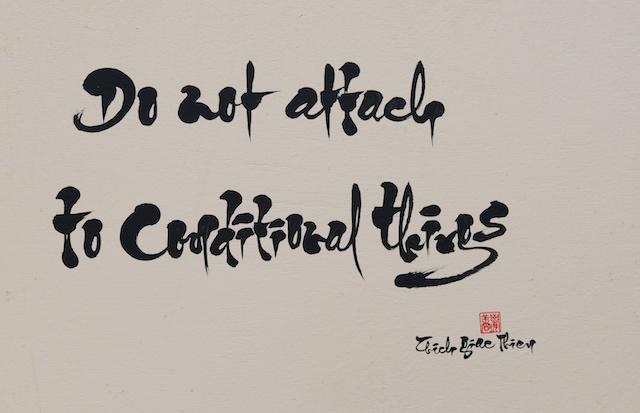 Do not attach
to Conditional things
Thich Giac Thien